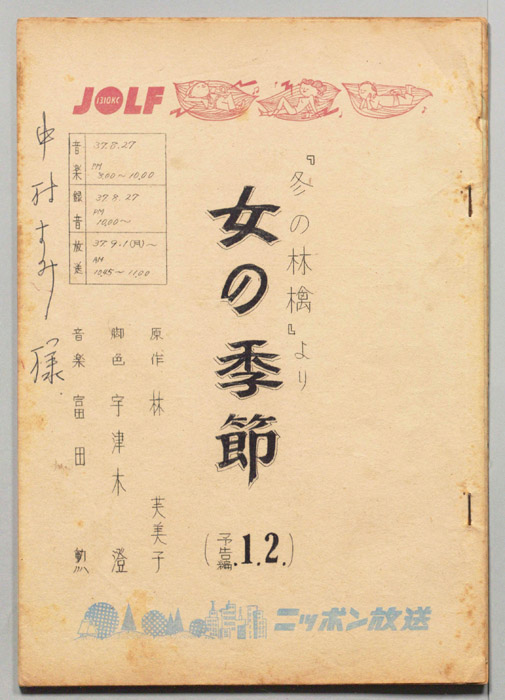 JOLF
1310KC
『冬の林檎』より
女の季節
(予告編.1.2.)
原作 林 芙美子
脚色 宇津木 澄
音楽 冨田 勲
音楽 37.8.27
PM
9.00〜10.00
録音 37.8.27
PM
10.00〜
放送 37.9.1(月)〜
AM
10.45〜11.00
中村すみ 様
ニッポン放送